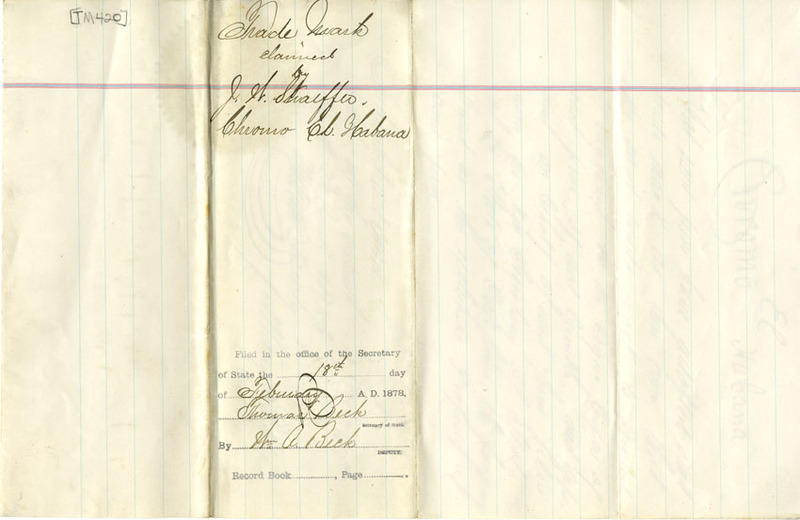 [TM420]
Trade Mark
claimed
by
J. W. Shaeffer.
Chromo El. Habana
Filed in the office of the Secretary
of State the 18th day
of February A. D. 1878.
Thomas Beck
Secretary of State
By Wm A. Beck
DEPUTY.
Record Book , Page .